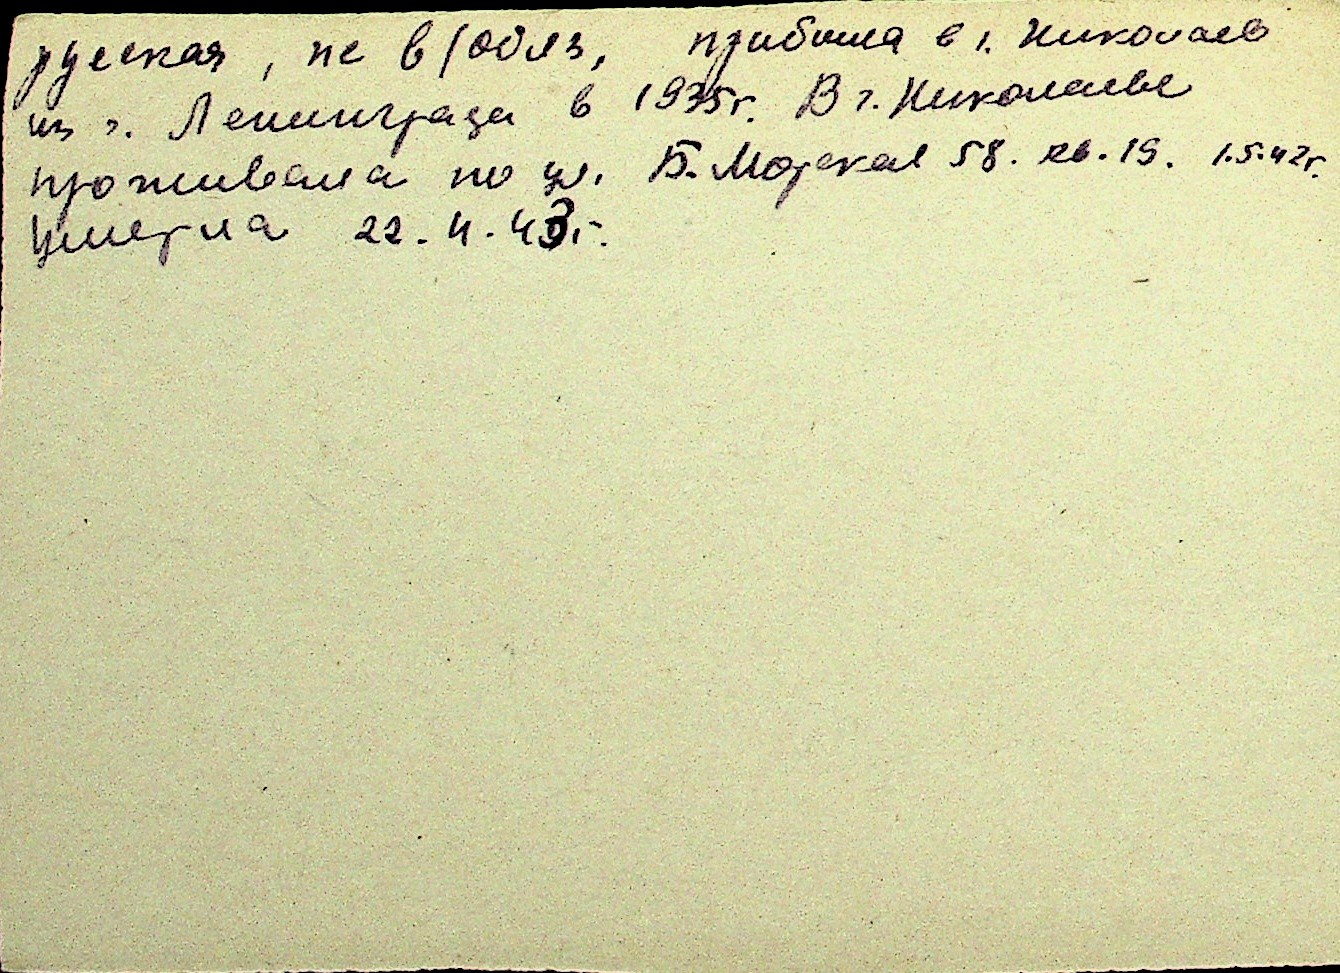 русская, не в/обяз, прибыла в г. Николаев
из г. Ленинграда в 1935г. В г. Николаеве
проживала по ул. Б. Морская 58. кв. 19. 1.5.42г.
умерла 22.4.43г.